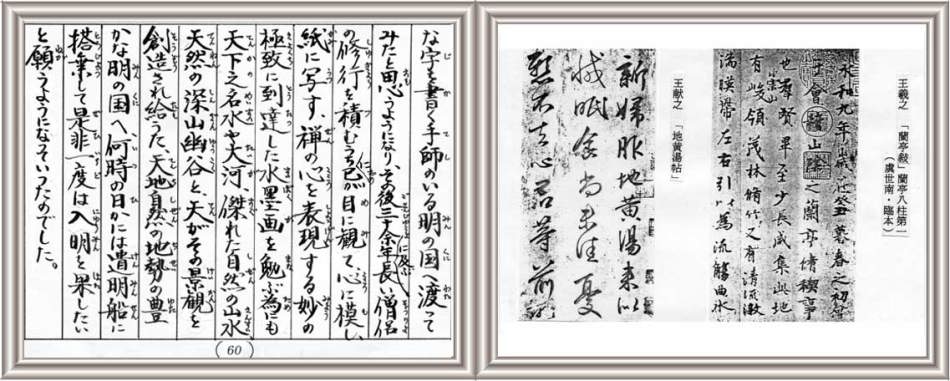 な字を書く手師のいる明の国へ渡って
みたいと思うようになり、その後三十余年に及ぶ長い僧侶
の修行を積むうち己が目に観て心に模し、
紙に写す、禅の心を表現する妙の
極致に到達した水墨画を勉ぶ為にも
天下之名水や大河、傑れた自然の山水
天然の深山幽谷と、天がその景観を
創造され給うた、天地自然の地勢の豊
かな明の国へ何時の日かには遣明船に
搭乗して是非一度は入明を果したい
と願うようになっていったのでした。
60
王羲之 「蘭亭敍」蘭亭八柱第一
（虞世南・臨本）
永和九年歳在癸丑暮春之初會
于會稽山陰之蘭亭脩稧事
也羣賢畢至少長咸集此地
有崇山峻領茂林脩竹又有清流激
湍暎帶左右引以為流觴曲水
王献之 「地黄湯帖」
新婦服地黄湯来以
減眠食尚未佳憂
懸不去心君等前所